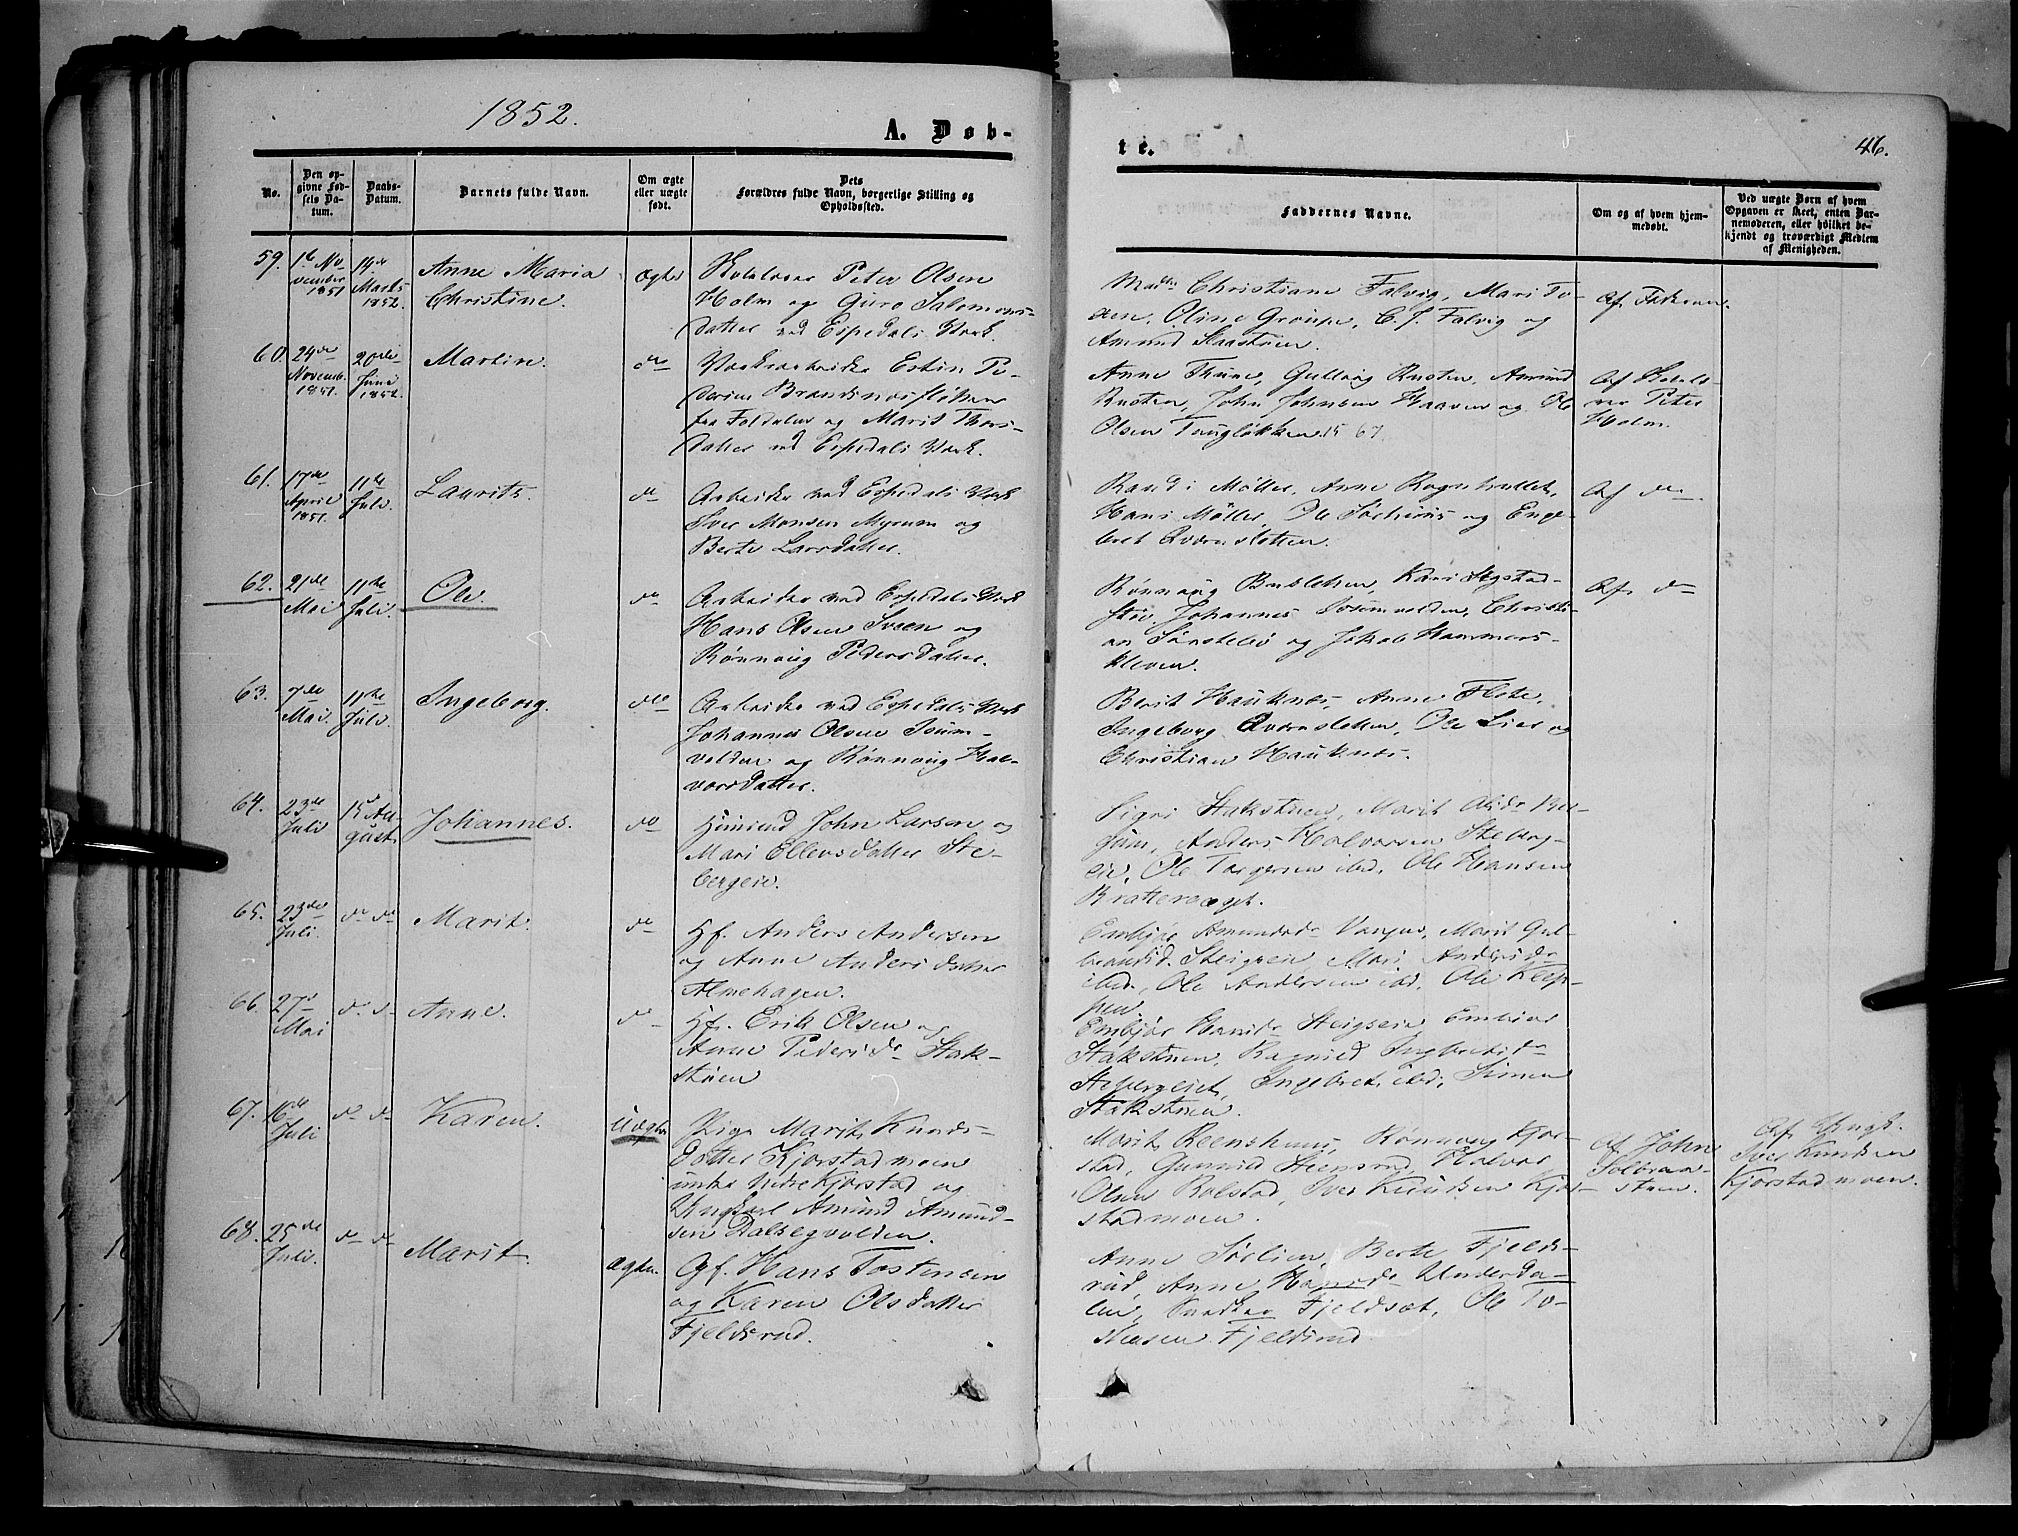 1852.
A. Døb-
te.
46.
No.
Den op-
givne Fød-
sels Da-
tum.
Daabs-
Datum.
Barnets fulde Navn.
Om ægte
eller uægte
født.
Dets
Forældres fulde Navn, borgerlige Stilling og
Opholdssted.
Faddernes Navne.
Om og af hvem hjem-
medøbt.
Ved uægte Børn af hvem
Opgaven er skeet, enten Bar-
nemoderen, eller hvilket be-
kjendt og troværdigt Medlem
af Menigheden.
59. 1ste No-
vember
1851
14de
Marts
1852.
Anne Maria
Christine.
Ægte
Peter Olsen
Holm og Guro Salomons-
datter ved Espedals Værk.
Christiane Falvig, Mari To-
Oline Grøupe, C. J. Falvig og
Amund Staastuen.
Af Faderen.
60. 24de
Novemb.
1851.
20de
Juni
1852.
Martin.
do
Værksarbeider Esten Pe-
dersen Brandsnesfløtten
fra Foldalen og Marit Thors-
datter ved Espedals Værk.
Anne Thune, Gullaug Rusten, Amund
Rusten, John Johnsen Haaven og Ole
Olsen Taugløkken 15 67.
Peter
Holm.
61. 17de
April
1851.
11te
Juli.
Laurits.
do
Arbeider ved Espedals Værk
Iver Monsen Myrum og
Berte Larsdatter.
Randi Møller, Anne
Hans Møller, Ole og Enge-
bret Qværnsletten.
Af do
62. 21de
Mai
11te
Juli.
Ole.
do
Arbeider ved Espedals Værk
Hans Olsen Sveen og
Rønnaug Pedersdatter.
Rønnaug Kari Segstad-
stu, Johannes Isumvolden, Christi-
an og Johan Hammers-
kleven.
Af do
63. 7de
Mai.
11te
Juli.
Ingeborg.
do
Arbeider ved Espedals Værk
Johannes Olsen Isum-
volden og Rønnoug Hal-
vorsdatter.
Berit Hauknes, Anne Flote,
Ingeborg Qværnsletten, Ole Lier og
Christian Hauknes.
64. 23de
Juli
15de Au-
gust.
Johannes.
do
Huusmd John Larsen og
Mari Ellevsdatter Ste-
bergeie.
Sigri Stakstuen, Marit
Anders Halvorsen Steberg-
eie, Ole Torgersen ibid, Ole Hansen
65. 23de
Juli.
do do
Marit.
do
Hf. Anders Andersen
og Anne Andersdatter
Almehagen.
Embjør Amundsdr Vangen, Marit Gul-
brandsd. Steigeeie Mari Andersdr
ibid., Ole Andersen ibd. Ole Klep-
pen.
66. 27d
Mai
do do
Anne.
do
Hf. Erik Olsen og
Anne Pedersdr Stak-
støen
Embjør Hansdr Steigseie, Embjør
Stakstuen, Ragnild Ingbretsdr
Stebergeiet, Ingebret ibd, Simen
Stakstuen.
67. 16de
Juli
do do
Karen.
Uægte
Pige Marit Knuds-
datter Kjørstadmoen
under Nedre Kjørstad og
Ungkarl Amund Amund-
sen Dalsegvolden.
Marit Reenshuus, Rønnoug Kjør-
stad, Gunnild Steensrud, Halvor
Olsen Rolstad, Iver Knudsen Kjør-
stadmoen.
Af John
Solbraa-
stuen.
Af Ungk.
Iver Knudsen
Kjørstadmoen.
68. 25de
Juli.
do do
Marit.
Ægte.
Gf. Hans Tostensen
og Karen Olsdatter
Fjeldsrud.
Anne Sørlien, Berte Fjelds-
rud, Anne Hansdr Underda-
len, Fjeldsæt, Ole To-
stensen Fjeldsrud.